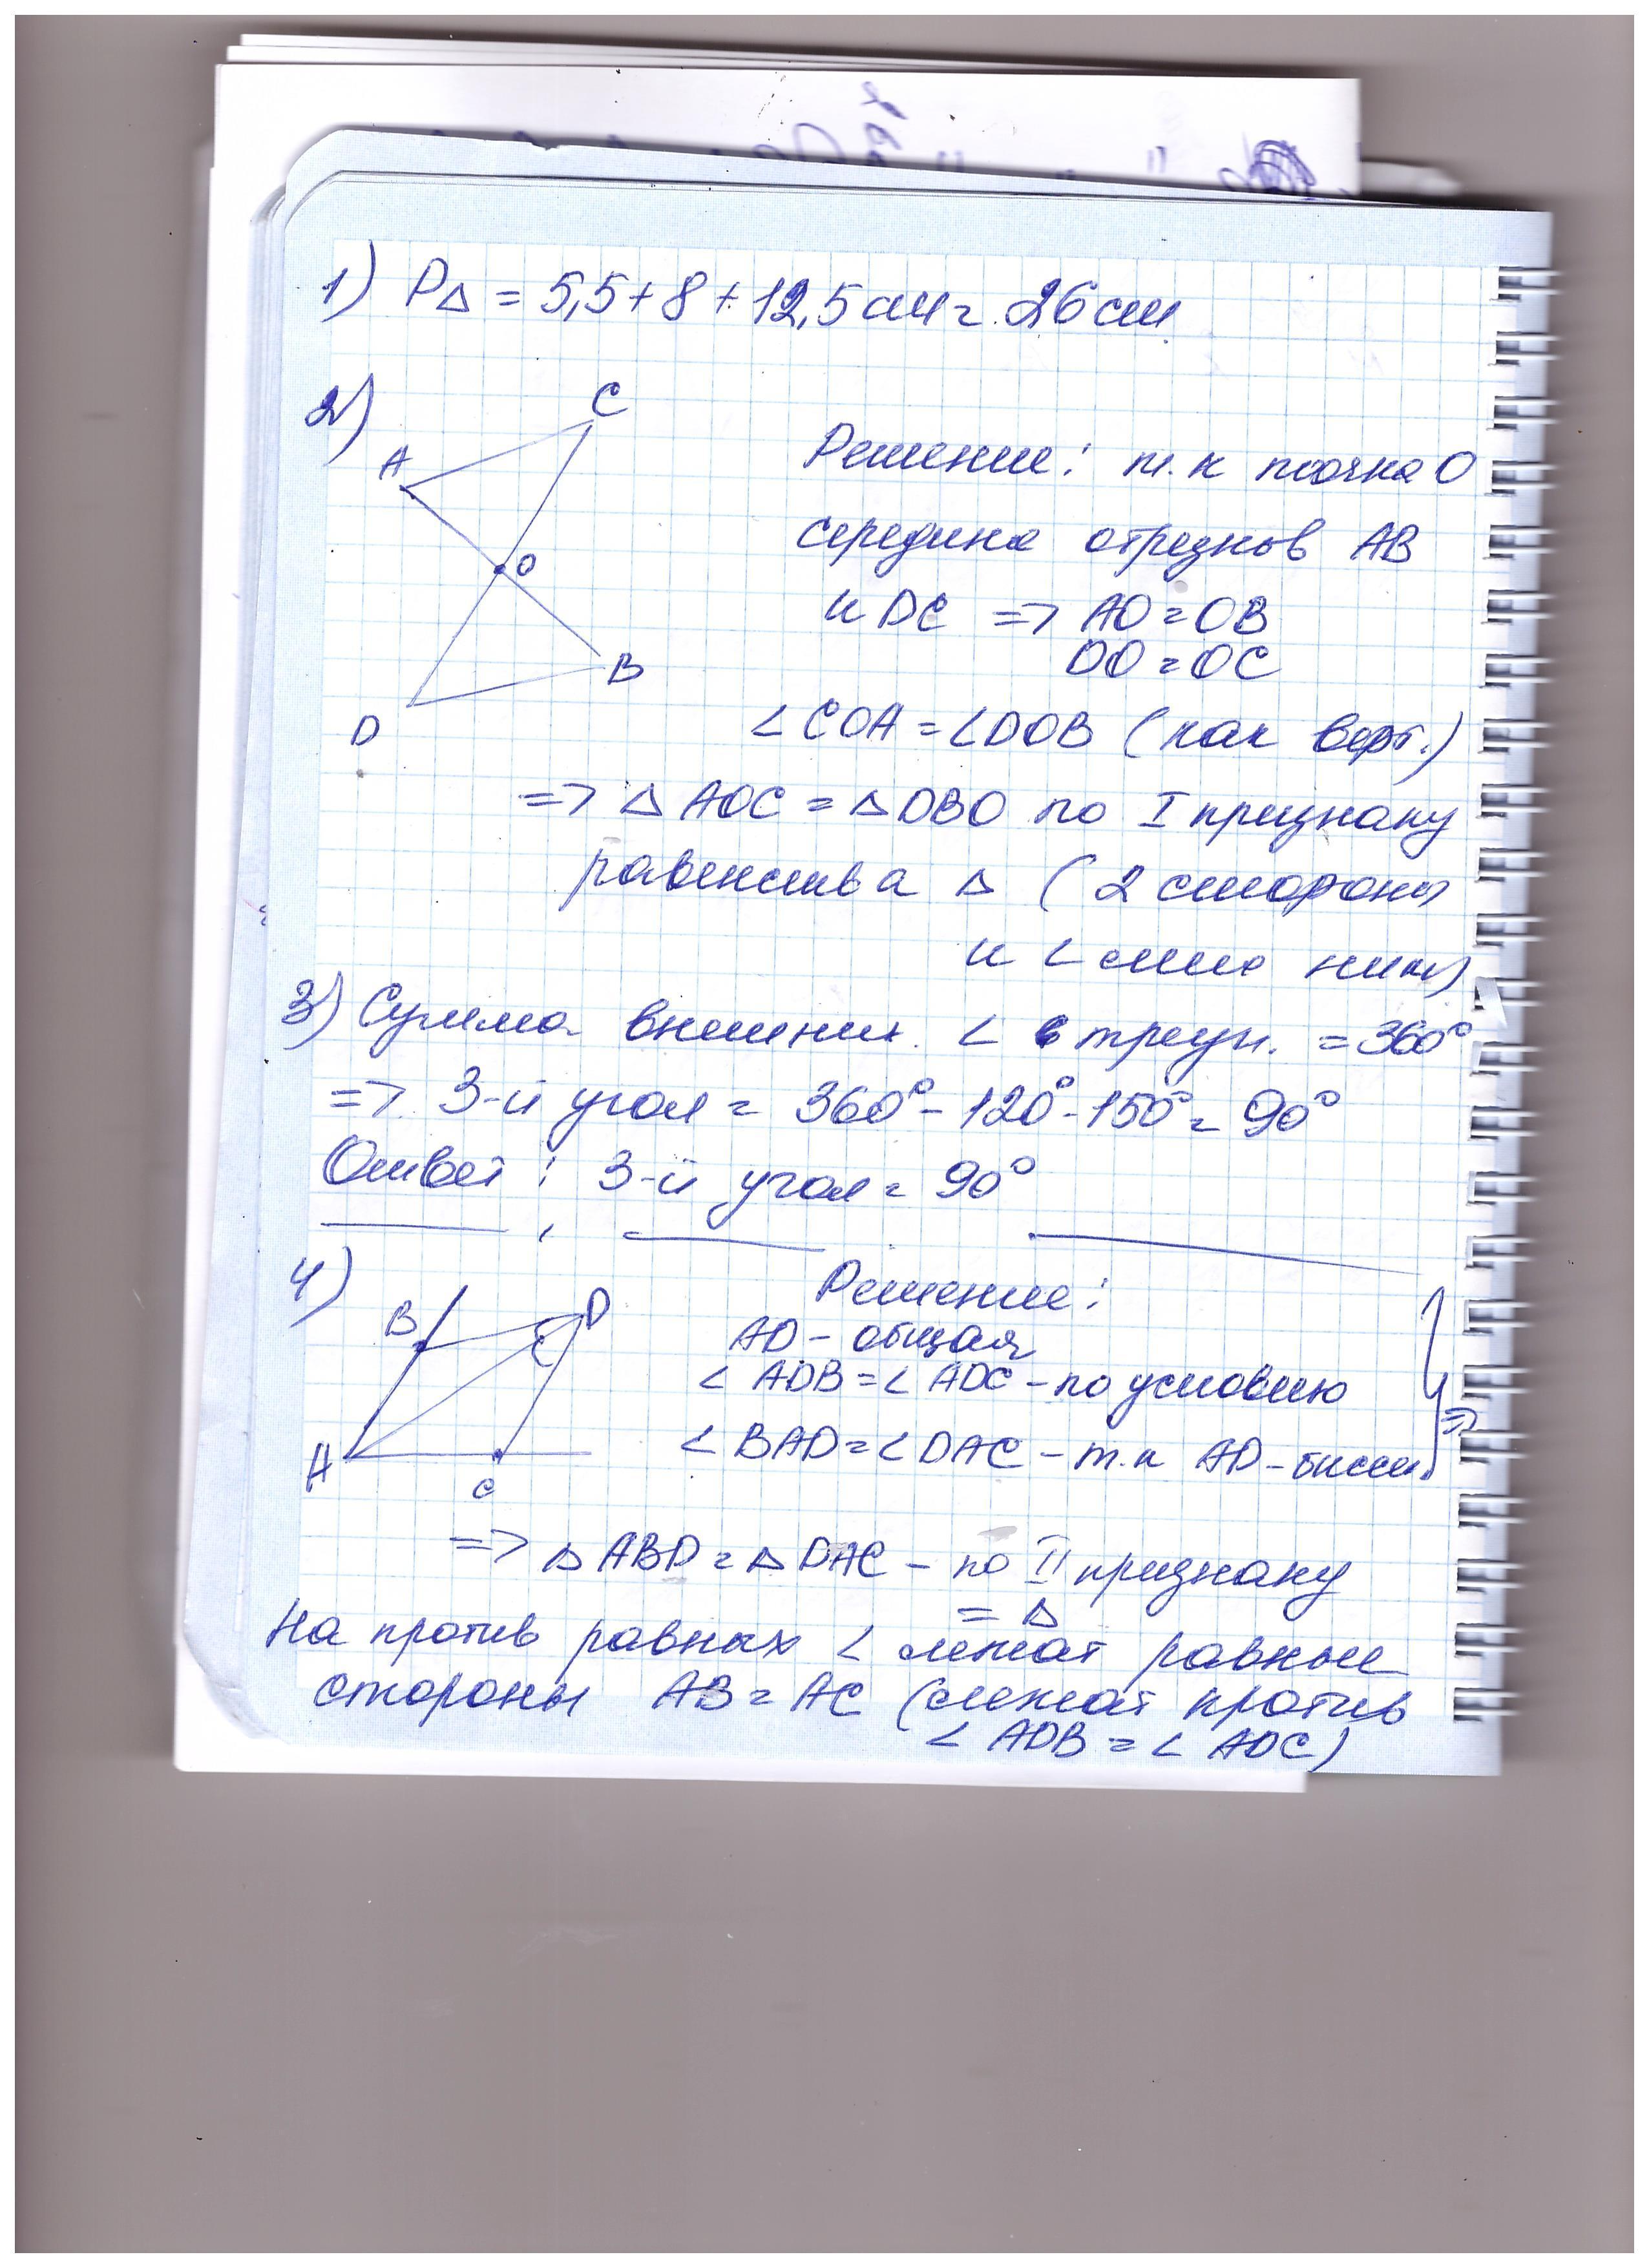 1) P△ = 5,5 + 8 + 12,5 см = 26 см
2)
C
A
O
B
D
Решение: т.к точка O
середина отрезков AB
и DC => AO = OB
DO = OC
∠COA = ∠DOB (как верт.)
=> △AOC = △DBO по I признаку
равенства △ (2 стороны
и ∠ ними)
3) Сумма внешних. ∠ в треуг. = 360°
=> 3-й угол = 360° - 120° - 150° = 90°
Ответ: 3-й угол = 90°
4)
B
D
A
C
Решение:
AD - общая
∠ADB = ∠ADC - по условию
∠BAD = ∠DAC - т.к AD - биссек. =>
=> △ABD = △DAC - по II признаку
= △
На против равных ∠ лежат равные
стороны AB = AC (лежат против
∠ADB = ∠ADC)